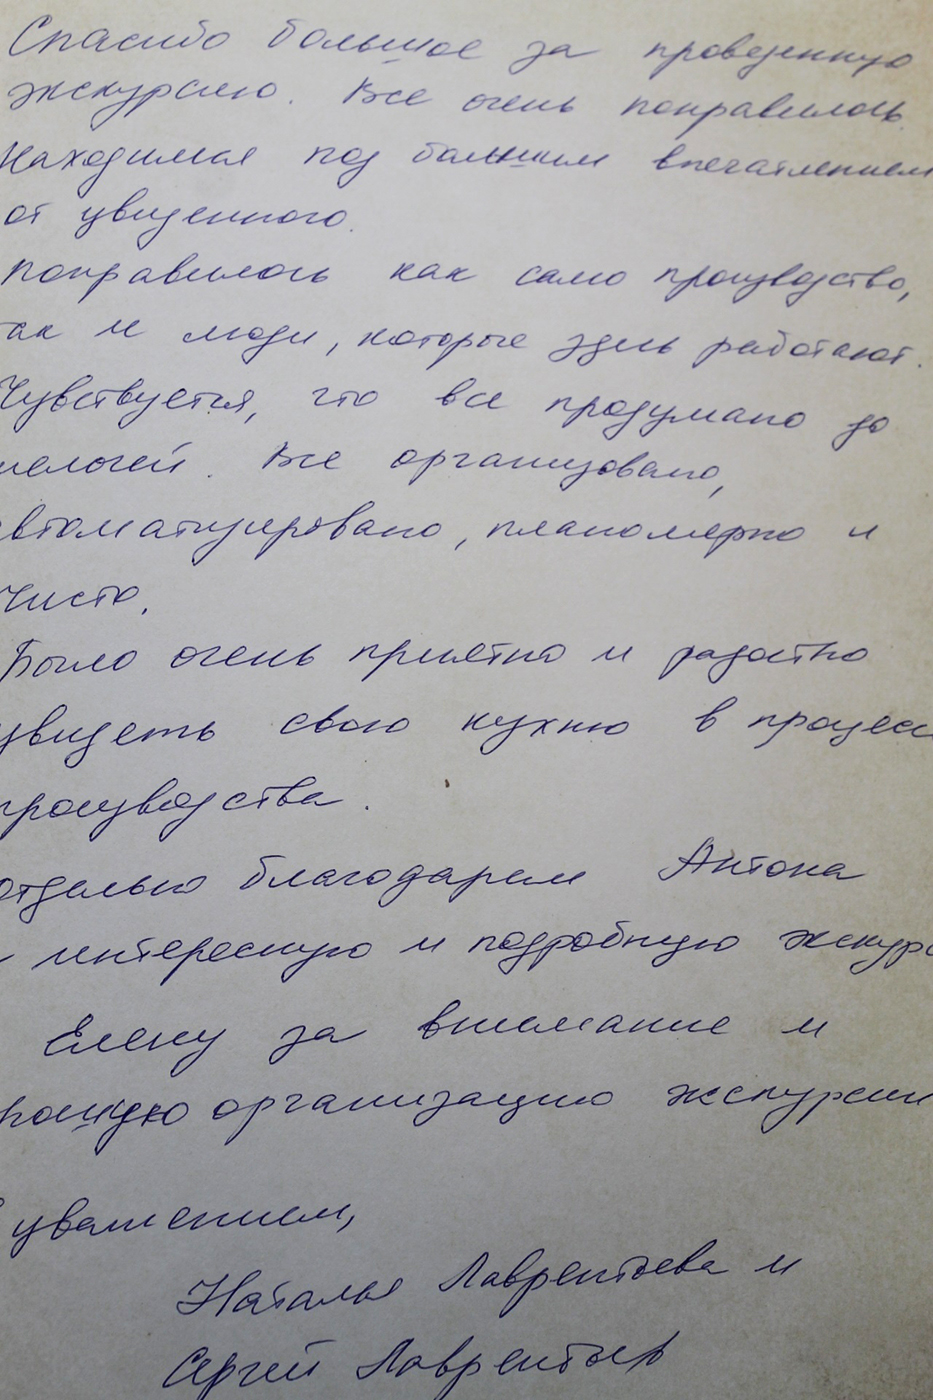 Спасибо большое за проведенную
экскурсию. Все очень понравилось.
Находимся под большим впечатлением
от увиденного.
Понравилось как само производство,
так и люди, которые здесь работают.
Чувствуется, что все продумано до
мелочей. Все организовано,
автоматизировано, планомерно и
чисто.
Было очень приятно и радостно
увидеть свою кухню в процесс
производства.
Отдельно благодарим Антона
интересную и подробную экскурс
Елену за внимание и
хорошую организацию экскурсии
С уважением,
Наталья Лаврентьева и
Сергей Лаврентьев